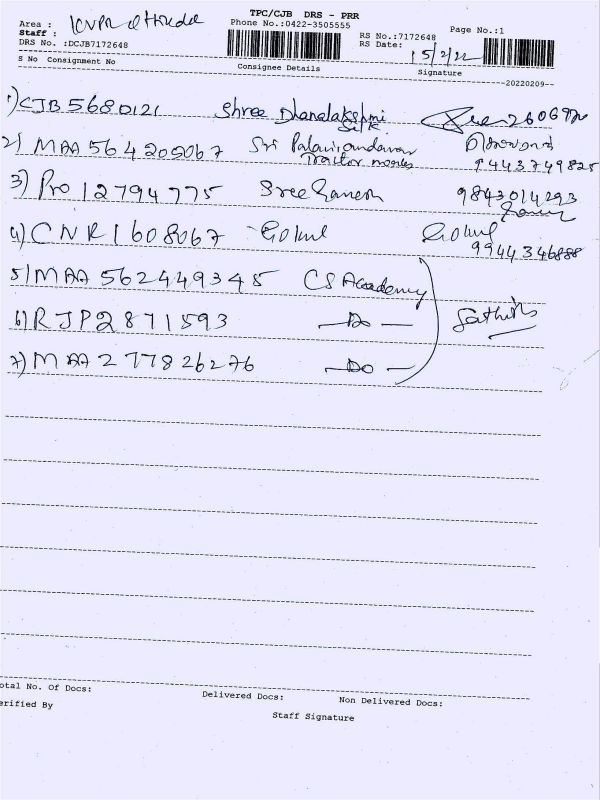 TPC/CJB DRS - PRR
Area : KVPR
Phone No.:0422-3505555
Page No.:1
Staff :
RS No.:7172648
DRS No. :DCJB7172648
RS Date: 15/2/22
S No Consignment No
Consignee Details
Signature
20220209
1) CJB 5680121 Shree Dhanalakshmi
Silk
2) MAA 564205067 Sri Palani
Tractor works 9443749825
3) Pro 12794775 Sree Ganesh 9843014293
4) CNR 1608067 Gokul Gokul
9944346888
5) MAA 562449345 CS Academy
6) RJP2871593 — Do — Sathish
7) MAA 277826276 — Do —
otal No. Of Docs:
Delivered Docs:
Non Delivered Docs:
erified By
Staff Signature